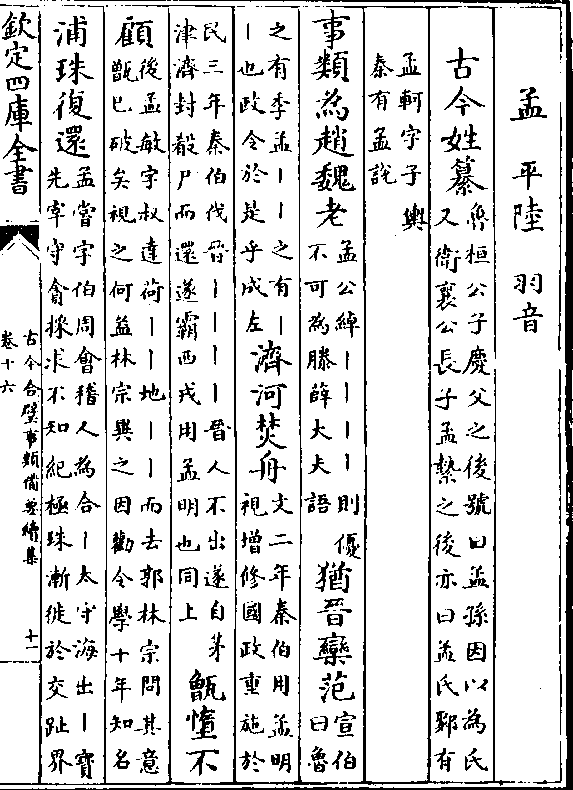 孟 平陸 羽音
古今姓纂
魯桓公子慶父之後號曰孟孫因以為氏
又衛襄公長子孟縶之後亦曰孟氏鄒有
孟軻字子輿
秦有孟說
事類為趙魏老
孟公綽丨丨丨丨則優
不可為滕薛大夫語
猶晉欒范
宣伯
曰魯
之有季孟丨丨之有丨
丨也政令於是乎成左
濟河焚舟
文二年秦伯用孟明
視增修國政重施於
民三年秦伯伐晉丨丨丨丨晉人不出遂自茅
津濟封殽尸而還遂霸西戎用孟明也同上
甑墮不
顧
後孟敏字叔達荷丨丨地丨丨而去郭林宗問其意
甑已破矣視之何益林宗異之因勸令學十年知名
浦珠復還
孟嘗字伯周會稽人為合丨太守海出丨寶
先宰守會採求不知紀極珠漸徙於交趾界
欽定四庫全書
古今合璧事類備要續集
卷十六
十一